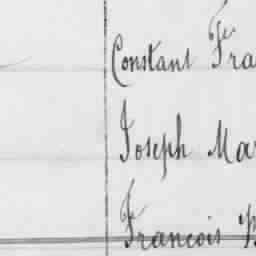 Constant Fra
Joseph Ma
Francois